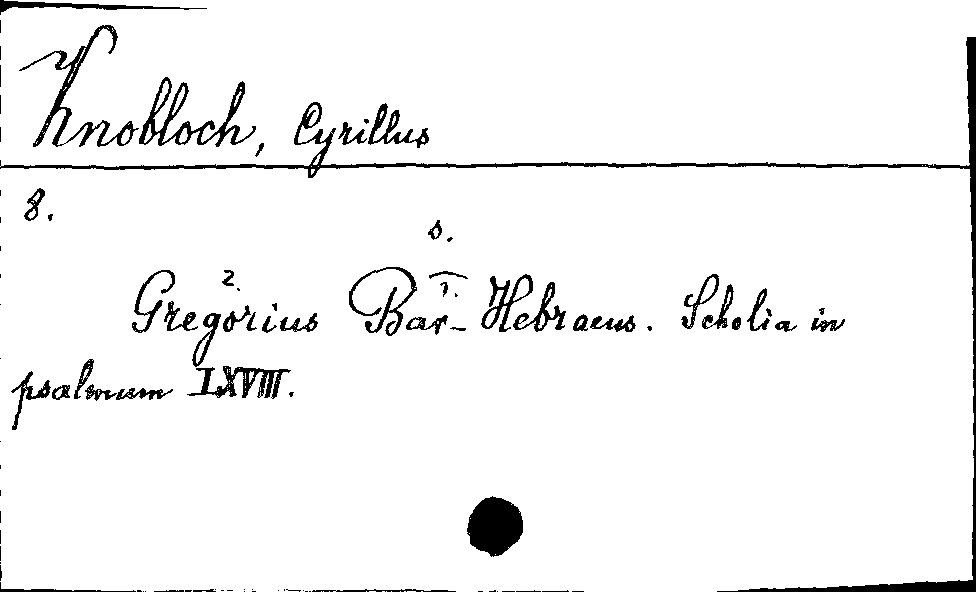 Knobloch, Cyrillus
8.
s.
2. 1.
Gregorius Bar-Hebraeus. Scholia in
psalmum LXVIII.